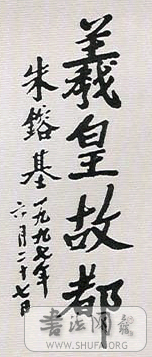 羲皇故都
朱镕基
一九九七年
六月二十七日
书法网
WWW.SHUFA.ORG